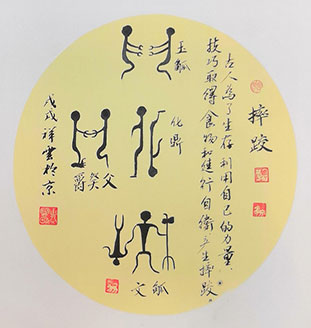 摔跤
古人为了生存利用自己的力量、
技巧取得食物和进行自衛产生摔跤。
玉觚
化鼎
父癸爵
觚文
戊戌祥雲於京